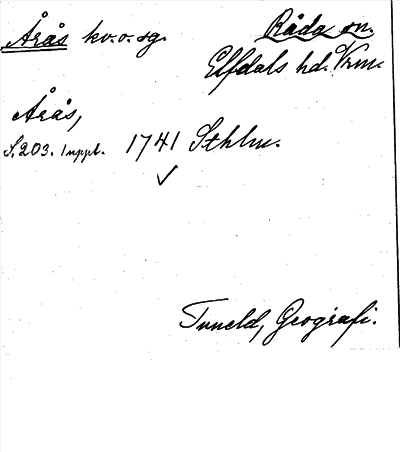 Årås kv. o. sg. Råda sn.
Elfdals hd. Vrm.
Årås,
S. 203. 1 uppl. 1741 Sthlm.
Tuneld, Geografi.